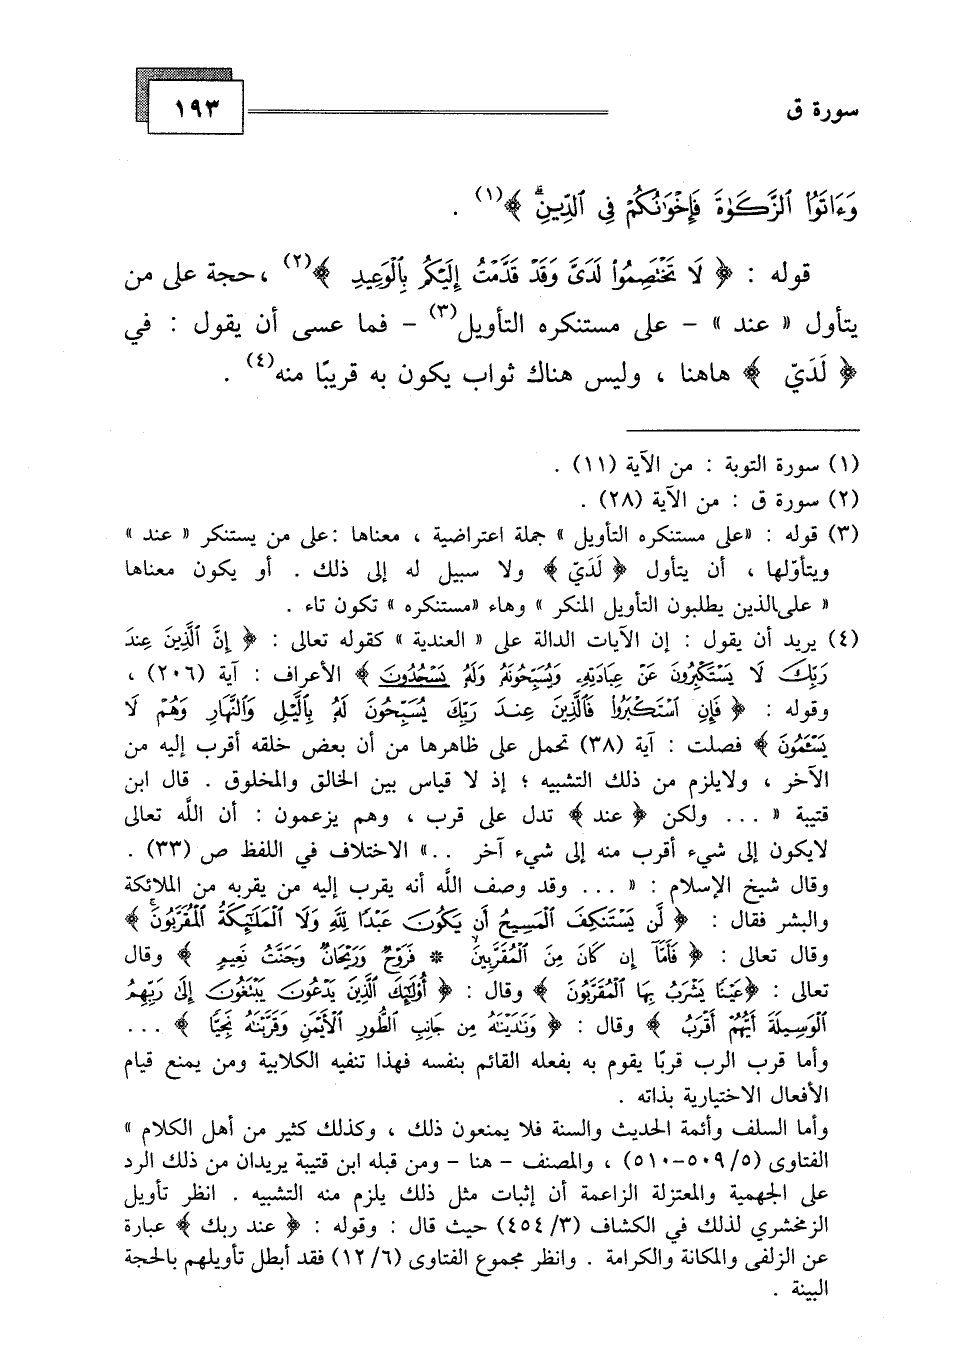 سورة ق
١٩٣
وَءَاتَوُا۟ ٱلزَّكَوٰةَ فَإِخْوَٰنُكُمْ فِى ٱلدِّينِۗ ﴾(١) .
قوله : ﴿ لَا تَخْتَصِمُوا۟ لَدَىَّ وَقَدْ قَدَّمْتُ إِلَيْكُم بِٱلْوَعِيدِ ﴾(٢) ، حجة على من
يتأول « عند » - على مستنكره التأويل(٣) - فما عسى أن يقول : في
﴿ لَدَيّ ﴾ هاهنا ، وليس هناك ثواب يكون به قريبًا منه(٤) .
(١) سورة التوبة : من الآية (١١) .
(٢) سورة ق : من الآية (٢٨) .
(٣) قوله : «على مستنكره التأويل » جملة اعتراضية ، معناها :على من يستنكر « عند »
ويتأوّلها ، أن يتأول ﴿ لَدَيّ ﴾ ولا سبيل له إلى ذلك . أو يكون معناها
« على الذين يطلبون التأويل المنكر » وهاء «مستنكره » تكون تاء .
(٤) يريد أن يقول : إن الآيات الدالة على « العندية » كقوله تعالى : ﴿ إِنَّ ٱلَّذِينَ عِندَ
رَبِّكَ لَا يَسْتَكْبِرُونَ عَنْ عِبَادَتِهِۦ وَيُسَبِّحُونَهُۥ وَلَهُۥ يَسْجُدُونَ ﴾ الأعراف : آية (٢٠٦) ،
وقوله : ﴿ فَإِنِ ٱسْتَكْبَرُوا۟ فَٱلَّذِينَ عِندَ رَبِّكَ يُسَبِّحُونَ لَهُۥ بِٱلَّيْلِ وَٱلنَّهَارِ وَهُمْ لَا
يَسْـَٔمُونَ ﴾ فصلت : آية (٣٨) تحمل على ظاهرها من أن بعض خلقه أقرب إليه من
الآخر ، ولايلزم من ذلك التشبيه ؛ إذ لا قياس بين الخالق والمخلوق . قال ابن
قتيبة « ... ولكن ﴿ عند ﴾ تدل على قرب ، وهم يزعمون : أن الله تعالى
لايكون إلى شيء أقرب منه إلى شيء آخر ..» الاختلاف في اللفظ ص (٣٣) .
وقال شيخ الإسلام : « ... وقد وصف الله أنه يقرب إليه من يقربه من الملائكة
والبشر فقال : ﴿ لَّن يَسْتَنكِفَ ٱلْمَسِيحُ أَن يَكُونَ عَبْدًا لِّلَّهِ وَلَا ٱلْمَلَـٰٓئِكَةُ ٱلْمُقَرَّبُونَۚ ﴾
وقال تعالى : ﴿ فَأَمَّآ إِن كَانَ مِنَ ٱلْمُقَرَّبِينَۙ * فَرَوْحٌ وَرَيْحَانٌ وَجَنَّتُ نَعِيمٍ ﴾ وقال
تعالى : ﴿عَيْنًا يَشْرَبُ بِهَا ٱلْمُقَرَّبُونَ ﴾ وقال : ﴿ أُو۟لَـٰٓئِكَ ٱلَّذِينَ يَدْعُونَ يَبْتَغُونَ إِلَىٰ رَبِّهِمُ
ٱلْوَسِيلَةَ أَيُّهُمْ أَقْرَبُ ﴾ وقال : ﴿ وَنَـٰدَيْنَـٰهُ مِن جَانِبِ ٱلطُّورِ ٱلْأَيْمَنِ وَقَرَّبْنَـٰهُ نَجِيًّا ﴾ ...
وأما قرب الرب قربًا يقوم به بفعله القائم بنفسه فهذا تنفيه الكلابية ومن يمنع قيام
الأفعال الاختيارية بذاته .
وأما السلف وأئمة الحديث والسنة فلا يمنعون ذلك ، وكذلك كثير من أهل الكلام »
الفتاوى (٥/ ٥٠٩-٥١٠) ، والمصنف - هنا - ومن قبله ابن قتيبة يريدان من ذلك الرد
على الجهمية والمعتزلة الزاعمة أن إثبات مثل ذلك يلزم منه التشبيه . انظر تأويل
الزمخشري لذلك في الكشاف (٣/ ٤٥٤) حيث قال : وقوله : ﴿ عند ربك ﴾ عبارة
عن الزلفى والمكانة والكرامة . وانظر مجموع الفتاوى (٦/ ١٢) فقد أبطل تأويلهم بالحجة
البينة .